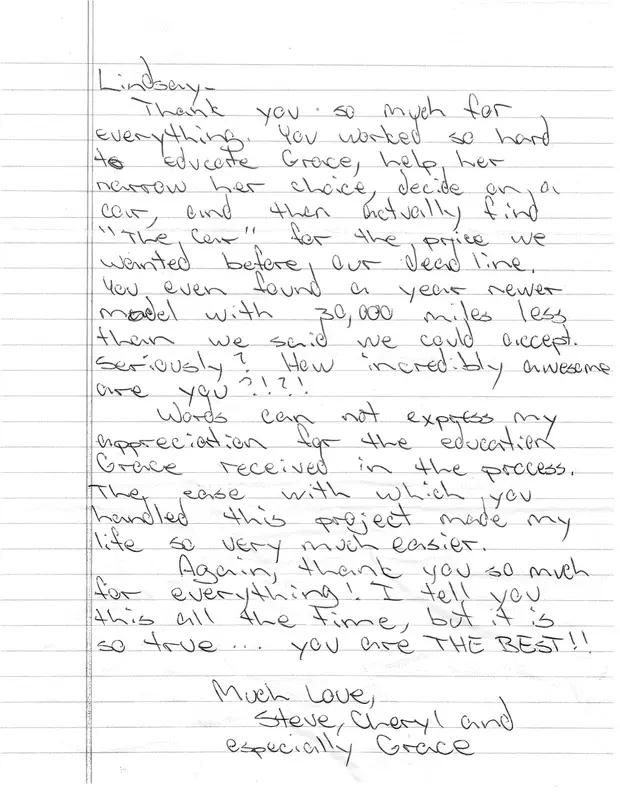 Lindsay-
Thank you so much for
everything. You worked so hard
to educate Grace, help her
narrow her choice, decide on a
car, and then actually find
"The Car" for the price we
wanted before our deadline.
You even found a year newer
model with 30,000 miles less
than we said we could accept.
Seriously? How incredibly awesome
are you?!?!
Words can not express my
appreciation for the education
Grace received in the process.
The ease with which you
handled this project made my
life so very much easier.
Again, thank you so much
for everything! I tell you
this all the time, but it is
so true... you are THE BEST!!
Much Love,
Steve, Cheryl and
especially Grace